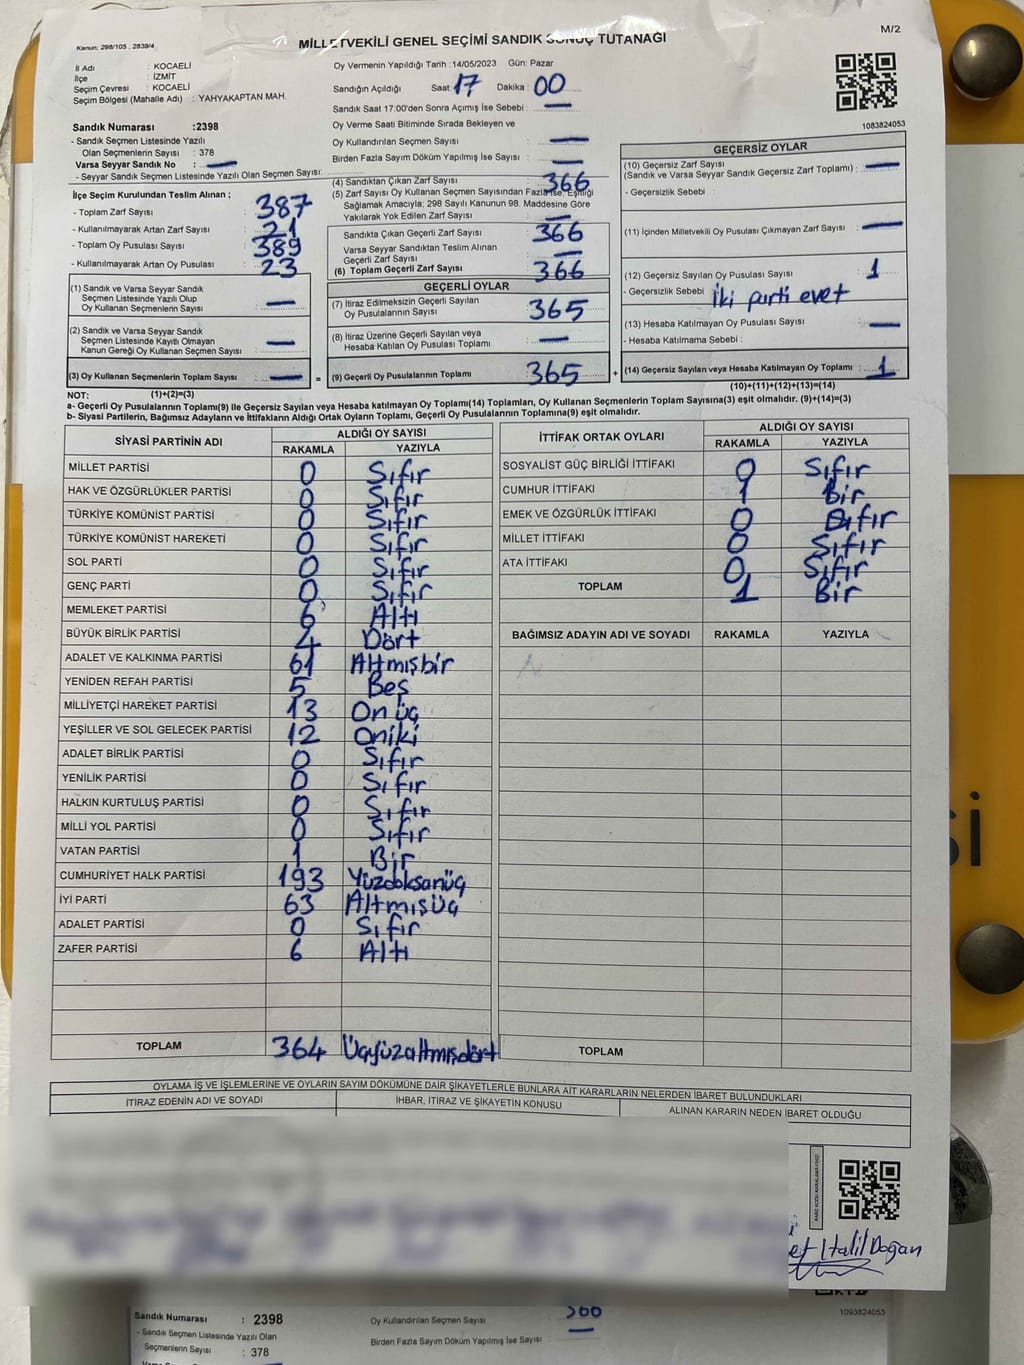 M/2
Kanun: 298/105 , 2839/4
MİLLETVEKİLİ GENEL SEÇİMİ SANDIK SONUÇ TUTANAĞI
İl Adı : KOCAELİ
İlçe : İZMİT
Seçim Çevresi : KOCAELİ
Seçim Bölgesi (Mahalle Adı) : YAHYAKAPTAN MAH.
Sandık Numarası :2398
- Sandık Seçmen Listesinde Yazılı
Olan Seçmenlerin Sayısı : 378
Varsa Seyyar Sandık No : —
- Seyyar Sandık Seçmen Listesinde Yazılı Olan Seçmen Sayısı:
İlçe Seçim Kurulundan Teslim Alınan ;
- Toplam Zarf Sayısı : 387
- Kullanılmayarak Artan Zarf Sayısı : 21
- Toplam Oy Pusulası Sayısı : 389
- Kullanılmayarak Artan Oy Pusulası : 23
(1) Sandık ve Varsa Seyyar Sandık
Seçmen Listesinde Yazılı Olup
Oy Kullanan Seçmenlerin Sayısı : —
(2) Sandık ve Varsa Seyyar Sandık
Seçmen Listesinde Kayıtlı Olmayan
Kanun Gereği Oy Kullanan Seçmen Sayısı : —
(3) Oy Kullanan Seçmenlerin Toplam Sayısı : — =
Oy Vermenin Yapıldığı Tarih :14/05/2023 Gün: Pazar
Sandığın Açıldığı Saat : 17 Dakika : 00
Sandık Saat 17:00'den Sonra Açımış İse Sebebi : —
Oy Verme Saati Bitiminde Sırada Bekleyen ve
Oy Kullandırılan Seçmen Sayısı : —
Birden Fazla Sayım Döküm Yapılmış İse Sayısı : —
(4) Sandıktan Çıkan Zarf Sayısı : 366
(5) Zarf Sayısı Oy Kullanan Seçmen Sayısından Fazla ise, Eşitliği
Sağlamak Amacıyla; 298 Sayılı Kanunun 98. Maddesine Göre
Yakılarak Yok Edilen Zarf Sayısı : —
Sandıkta Çıkan Geçerli Zarf Sayısı : 366
Varsa Seyyar Sandıktan Teslim Alınan
Geçerli Zarf Sayısı : —
(6) Toplam Geçerli Zarf Sayısı : 366
GEÇERLİ OYLAR
(7) İtiraz Edilmeksizin Geçerli Sayılan
Oy Pusulalarının Sayısı : 365
(8) İtiraz Üzerine Geçerli Sayılan veya
Hesaba Katılan Oy Pusulası Toplamı : —
(9) Geçerli Oy Pusulalarının Toplamı : 365 +
1083824053
GEÇERSİZ OYLAR
(10) Geçersiz Zarf Sayısı
(Sandık ve Varsa Seyyar Sandık Geçersiz Zarf Toplamı) : —
- Geçersizlik Sebebi :
(11) İçinden Milletvekili Oy Pusulası Çıkmayan Zarf Sayısı : —
(12) Geçersiz Sayılan Oy Pusulası Sayısı : 1
- Geçersizlik Sebebi : İki parti evet
(13) Hesaba Katılmayan Oy Pusulası Sayısı : —
- Hesaba Katılmama Sebebi :
(14) Geçersiz Sayılan veya Hesaba Katılmayan Oy Toplamı : 1
NOT: (1)+(2)=(3) (10)+(11)+(12)+(13)=(14)
a- Geçerli Oy Pusulalarının Toplamı(9) ile Geçersiz Sayılan veya Hesaba katılmayan Oy Toplamı(14) Toplamları, Oy Kullanan Seçmenlerin Toplam Sayısına(3) eşit olmalıdır. (9)+(14)=(3)
b- Siyasi Partilerin, Bağımsız Adayların ve İttifakların Aldığı Ortak Oyların Toplamı, Geçerli Oy Pusulalarının Toplamına(9) eşit olmalıdır.
SİYASİ PARTİNİN ADI ALDIĞI OY SAYISI
RAKAMLA YAZIYLA
MİLLET PARTİSİ 0 Sıfır
HAK VE ÖZGÜRLÜKLER PARTİSİ 0 Sıfır
TÜRKİYE KOMÜNİST PARTİSİ 0 Sıfır
TÜRKİYE KOMÜNİST HAREKETİ 0 Sıfır
SOL PARTİ 0 Sıfır
GENÇ PARTİ 0 Sıfır
MEMLEKET PARTİSİ 6 Altı
BÜYÜK BİRLİK PARTİSİ 4 Dört
ADALET VE KALKINMA PARTİSİ 61 Altmışbir
YENİDEN REFAH PARTİSİ 5 Beş
MİLLİYETÇİ HAREKET PARTİSİ 13 On üç
YEŞİLLER VE SOL GELECEK PARTİSİ 12 Oniki
ADALET BİRLİK PARTİSİ 0 Sıfır
YENİLİK PARTİSİ 0 Sıfır
HALKIN KURTULUŞ PARTİSİ 0 Sıfır
MİLLİ YOL PARTİSİ 0 Sıfır
VATAN PARTİSİ 1 Bir
CUMHURİYET HALK PARTİSİ 193 Yüzdoksanüç
İYİ PARTİ 63 Altmışüç
ADALET PARTİSİ 0 Sıfır
ZAFER PARTİSİ 6 Altı
TOPLAM 364 Üçyüzaltmışdört
İTTİFAK ORTAK OYLARI ALDIĞI OY SAYISI
RAKAMLA YAZIYLA
SOSYALİST GÜÇ BİRLİĞİ İTTİFAKI 0 Sıfır
CUMHUR İTTİFAKI 1 Bir
EMEK VE ÖZGÜRLÜK İTTİFAKI 0 Sıfır
MİLLET İTTİFAKI 0 Sıfır
ATA İTTİFAKI 0 Sıfır
TOPLAM 1 Bir
BAĞIMSIZ ADAYIN ADI VE SOYADI RAKAMLA YAZIYLA
TOPLAM
OYLAMA İŞ VE İŞLEMLERİNE VE OYLARIN SAYIM DÖKÜMÜNE DAİR ŞİKAYETLERLE BUNLARA AİT KARARLARIN NELERDEN İBARET BULUNDUKLARI
İTİRAZ EDENİN ADI VE SOYADI İHBAR, İTİRAZ VE ŞİKAYETİN KONUSU ALINAN KARARIN NEDEN İBARET OLDUĞU
et Halil Doğan
1093824053
Sandık Numarası : 2398
- Sandık Seçmen Listesinde Yazılı Olan
Seçmenlerin Sayısı : 378
Oy Kullandırılan Seçmen Sayısı : 366
Birden Fazla Sayım Döküm Yapılmış İse Sayısı : —